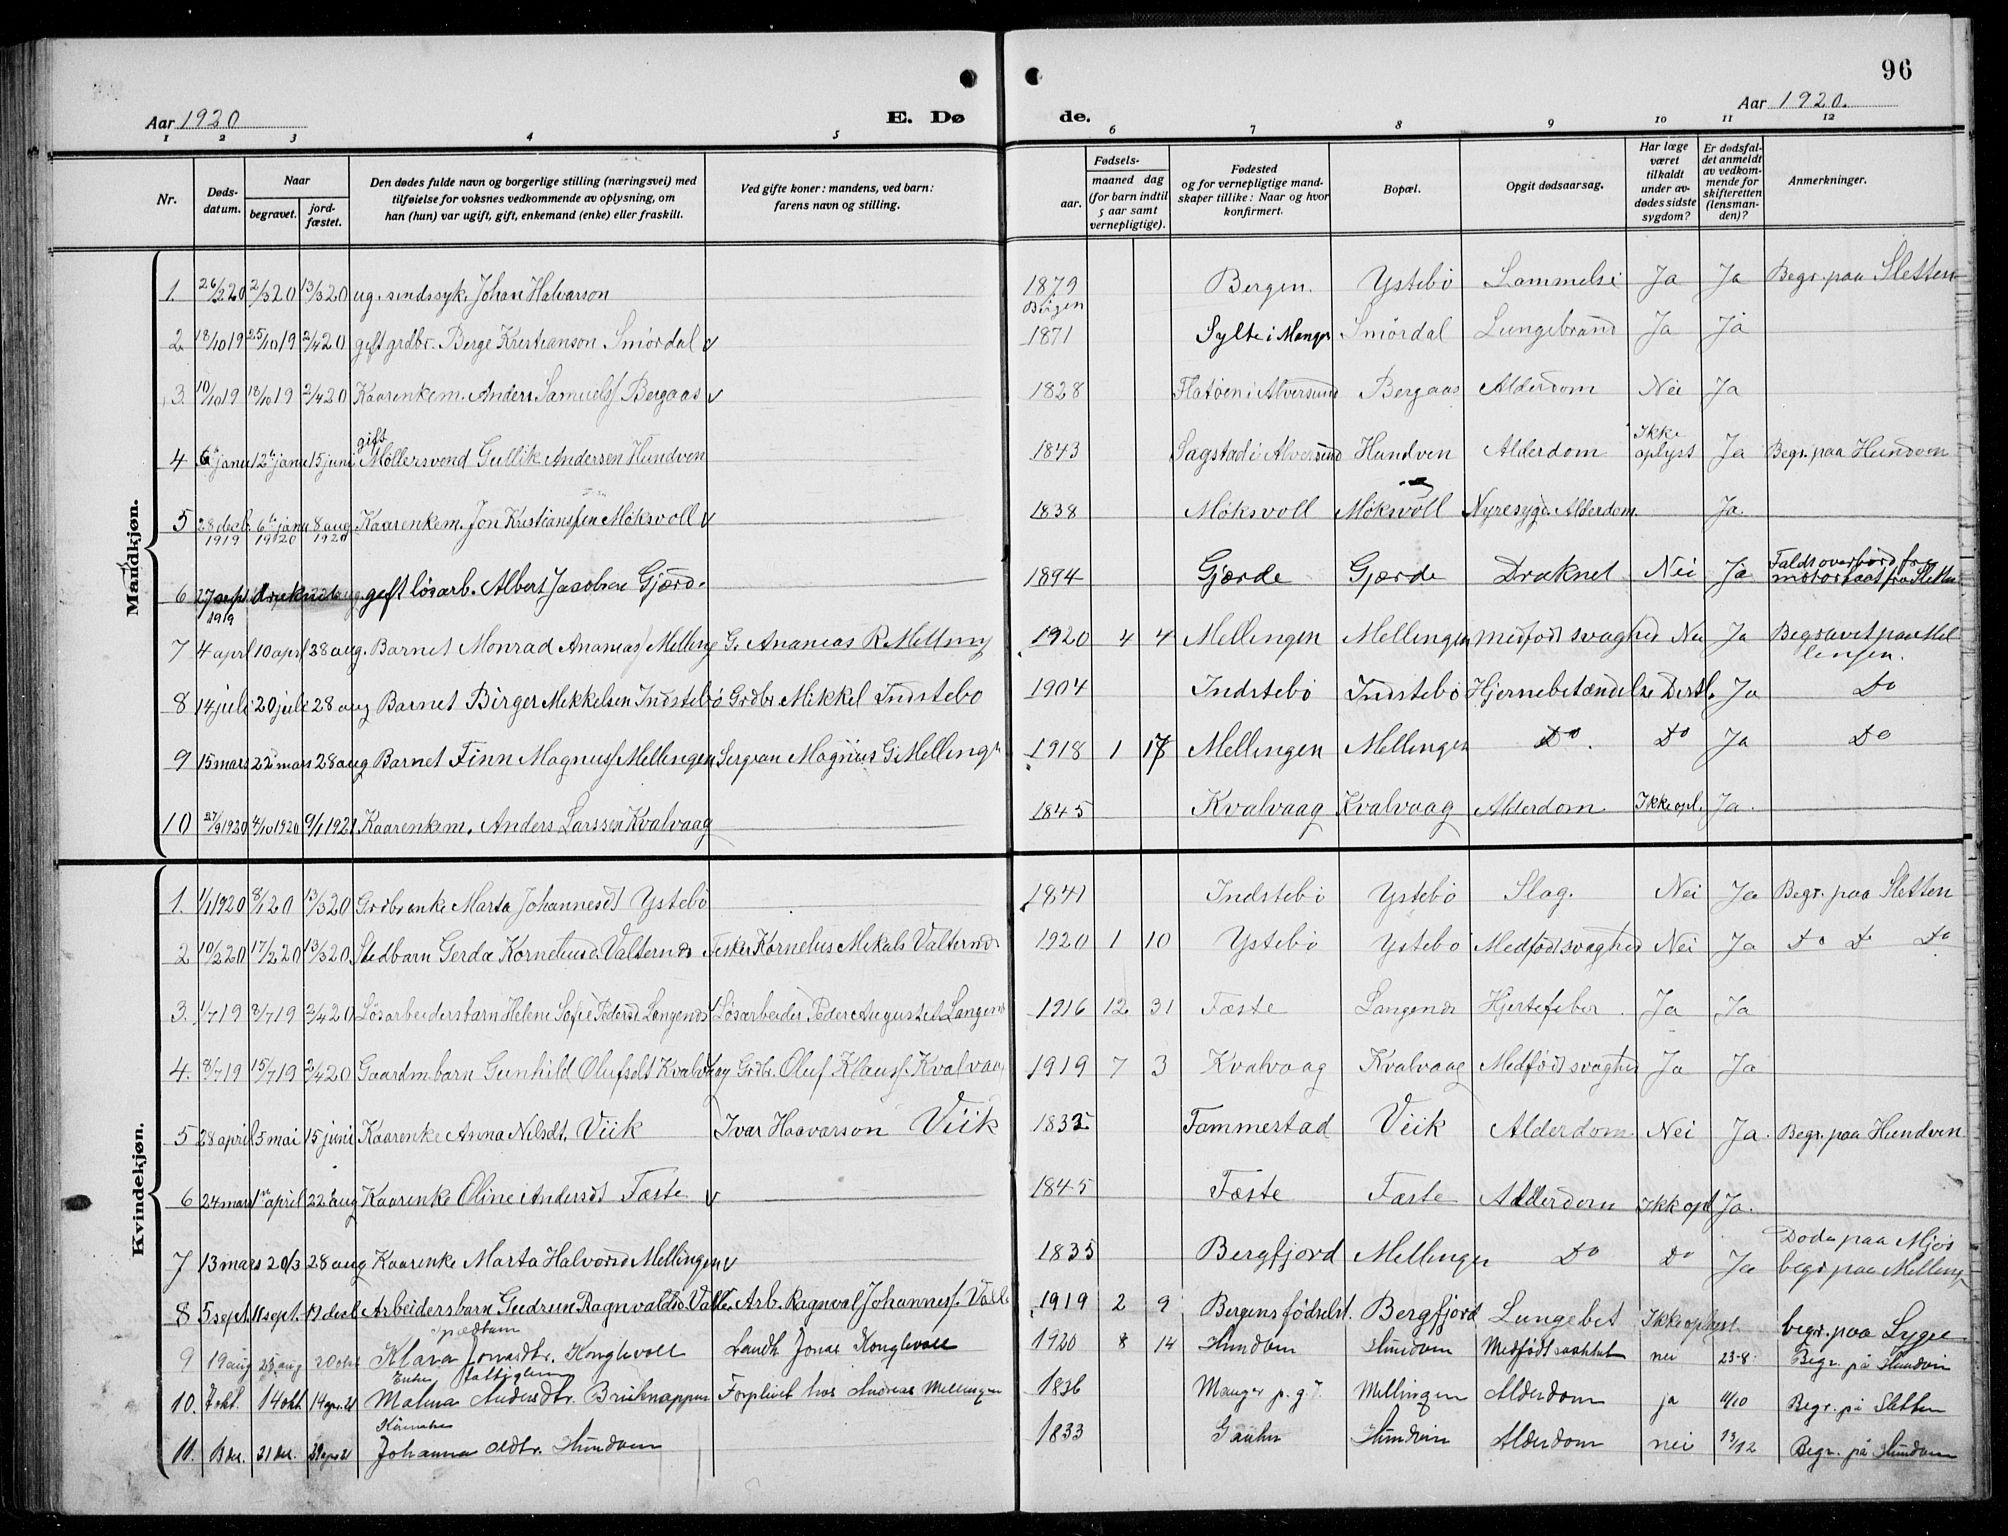 96
Aar 1920 E. Dø de. Aar 1920.
1 2 3 4 5 6 7 8 9 10 11 12
Nr. Døds-datum. Naar begravet. jord-fæstet. Den dødes fulde navn og borgerlige stilling (næringsvei) med tilføielse for voksnes vedkommende av oplysning, om han (hun) var ugift, gift, enkemand (enke) eller fraskilt. Ved gifte koner: mandens, ved barn: farens navn og stilling. Fødsels- aar. maaned dag (for barn indtil 5 aar samt vernepligtige). Fødested og for vernepligtige mand-skaper tillike: Naar og hvor konfirmert. Bopæl. Opgit dødsaarsag. Har læge været tilkaldt under av-dødes sidste sygdom? Er dødsfal-det anmeldt av vedkom-mende for skifteretten (lensman-den)? Anmerkninger.
Mandkjøn.
1. 26/2 20 2/3 20 13/3 20 ug. sindssyk. Johan Halvarson 1879 Bergen Bergen. Ystebö Lammelse Ja Ja Begr. paa Sletten
2 18/10 19 25/10 19 2/4 20 gift grdbr. Berge Kristianson Smördal v 1871 Sylte i Manger Smördal Lungebrand Ja Ja
3. 10/10 19 18/10 19 2/4 20 Kaarenkem. Anders Samuels. Bergaas v 1828 Flatöen i Alversund Bergaas Alderdom Nei Ja
4 6te janu 12te janu 15 juni gift Møllersvend Gullik Andersen Hundven 1843 Sagstad i Alversund Hundven Alderdom Ikke oplyst Ja Begr. paa Hundven
5 28 decb. 1919 6te janu 1920 8 aug 1920 Kaarenkem. Jon Kristianssen Møksvoll v 1838 Møksvoll Møksvoll Nyresyge Alderdom. Ja
6 27 sept 1919 druknet gift løsarb. Albert Jacobsen Gjærde 1894 Gjærde Gjærde Druknet Nei Ja Faldt overbord fra motorbaat fra Sletten
7 4 aprl 10 aprl 28 aug. Barnet Monrad Ananias Melling G. Ananias R. Melling 1920 4 4 Mellingen Mellingen medfödt svaghed Nei Ja Begravet paa Mellingen.
8 14 juli 20 juli 28 aug Barnet Birger Mikkelsen Indstebö Grdbr Mikkel Indstebö 1904 Indstebö Indstebö Hjernebetændelse Ja Do
9 15 mars 22 mars 28 aug Barnet Finn Magnus. Mellingen Magnus G. Mellingen 1918 1 17 Mellingen Mellingen Do. Do Ja Do
10 27/9 1920 4/10 1920 9/1 1921 Kaarenkem. Anders Larssen Kvalvaag 1845 Kvalvaag Kvalvaag Alderdom. Ikke opl. Ja.
Kvindekjøn.
1. 1/1 1920 8/1 20 13/3 20 Grdbr enke Marta Johannesdt Ystebö 1841 Indstebö Ystebö Slag. Nei Ja Begr. paa Sletten
2 10/2 20 17/2 20 13/3 20. Gerda Korneliusd. Valternes Fisker Kornelius Mikals. Valternes 1920 1 10 Ystebö Ystebö Medfödt svaghed Nei Ja Do Do Do
3. 1/7 19 8/7 19 3/4 20 Løsarbeidersbarn Helene Sofie Pedersd. Langenes Løsarbeider Peder Augustes. Langenes 1916 12 31 Fæste Langenes Hjertefeber. Ja Ja
4. 8/7 19 15/7 19 3/4 20 Gaardm barn Gunhild Olufsdt Kvalvaag Grdbr. Oluf Klaus. Kvalvaag 1919 7 3 Kvalvaag Kvalvaag Medfödt svaghed Ja Ja
5 28 april 5 mai 15 juni Kaarenke Anna Nilsdt. Viik Ivar Haavarson Viik 1832 Tammerstad Viik Alderdom. Nei Ja. Begr. paa Hundven
6 24 mars 1ste april 22 aug Kaarenke Oline Andersdt Fæste v 1845 Fæste Fæste Alderdom Ikke opl Ja.
7 13 mars 20/3 28 aug Kaarenke Marta Halvorsd Mellingen v 1835 Bergfjord Mellingen Do Do Ja Dode paa Mjøs begr. paa Melling
8 5 sept. 11 sept. 19 decb Arbeidersbarn Gudrun Ragnvaldsd. Valle. Arb. Ragnval Johannes. Valle 1919 2 9 Bergens födselst. Bergfjord Lungebet Ikke oplyst begr. paa Lygre
9 19 aug 25 aug 20 okt spædbarn Klara Jonasdtr. Konglevoll Landh. Jonas Konglevoll 1920 8 14 Hundven Hundven Medfödt nei 23-8. Begr. på Hundven
10. 7 okt. 14 okt. 14 apr. 21 Enke fattiglem Malena Andersdtr. Forpleiet hos Andreas Mellingen 1836 Manger p. g. Mellingen Alderdom ja 11/10 Begr. på Sletten
11. 21 des. 21 Johanna Hundven 1833 Hundven Alderdom nei 23/12 Begr. på Hundven